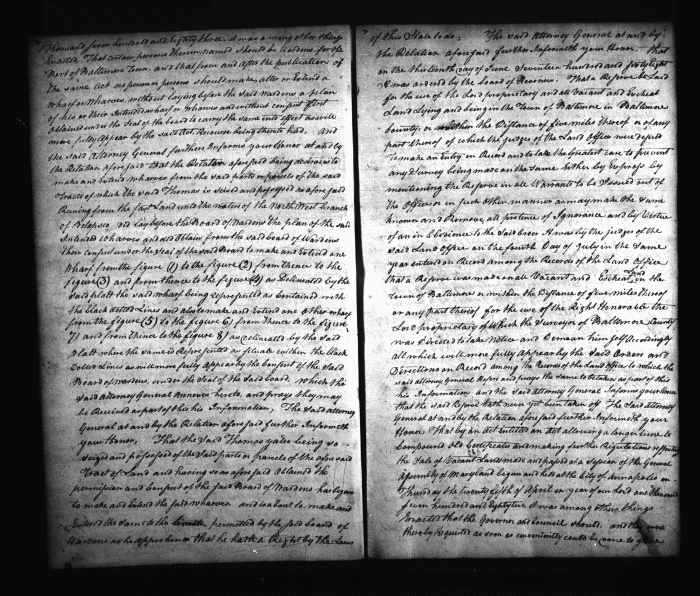 Thousand seven hundred and Eighty three it was among other things
Enacted That certain persons therein named should be Wardens for the
Port of Baltimore Town and that from and after the publication of
the same Act no person persons should make, alter or Extend a
wharf or Wharves, without laying before the said Wardens a plan
of his or their Intended wharf or wharves and without consent first
obtained under the Seal of the board to carry the same into effect as will
more fully appear by the said Act Recourse being thereto had, and
the said Attorney General further Informs your Honor at and by
the Relation aforesaid That the Relator aforesaid being desirous to
make and Extend wharves from the said parts or parcels of the said
tracts of which the said Thomas is Seized and possessed as aforesaid
Running from the fast Land into the water of the North West branch
of Patapsco, did lay before the Board of Wardens the plan of the said
Intended wharves and did obtain from the said board of Wardens
their consent under the Seal of the said Board to make and Extend one
Wharf from the figure (1) to the figure (2) from thence to the
figure (3) and from thence to the figure (4) as Delineated by the
said plat the said wharf being represented as contained with
the black dotted Lines and also to make and Extend one other wharf
from the figure (5) to the figure 6) from thence to the figure
7) and from thence to the figure 8) as delineated by the said
Plat where the same is Represented as situate within the black
Dotted Lines as will more fully appear by the consent of the said
Board of Wardens, under the Seal of the said board, which the
said Attorney General Annexes hereto, and prays they may
be Received as part of this his Information, The said Attorney
General at and by the Relation aforesaid further Informeth
your Honor, That the said Thomas Yates being so
seized and possessed of the said parts or parcels of the aforesaid
Tract of Land and having so as aforesaid obtained the
permission and consent of the said Board of Wardens has began
to make and Extend the said wharves and is about to make and
Extend the same to the permitted by the said board of
Wardens as he apprehends that he hath a Right by the Laws
of this State to do. The said Attorney General at and by
the Relation aforesaid further Informeth your Honor. That
on the thirteenth day of June Seventeen hundred and forty Eight
it was ordered by the board of Revenue That a Reserve be laid
for the use of the Lord proprietary and all Vacant and Escheat
Land Lying and being in the Town of Baltimore in Baltimore
County or within the Distance of five miles thereof or of any
part thereof of which the judges of the Land Office were desired
to make an Entry on Record and to take the Greatest care to prevent
any Survey being made on the same Either by Express by
mentioning the Reserve in all Warrants to be Issued out of
the Office or in such other manner as may make the same
known and Remove all pretence of Ignorance and by Virtue
of an in Obedience to the said Order It was by the judges of the
said Land Office on the fourth Day of July in the same
year entered on Record Among the Records of the Land Office
that a Reserve was made on all Vacant and Escheat Land in the
Town of Baltimore or within the Distance of five miles thereof
or any part thereof for the use of the Right Honorable the
Lord proprietary of which the Surveyor of Baltimore County
was Directed to take Notice and Demean himself accordingly
all which will more fully appear by the said Orders and
Directions on Record among the Records of the Land Office to which the
said attorney general Refers and prays the same to be taken as part of this
his Information and the said Attorney General Informs your Honor
that the said Reserve hath never yet been taken off The said Attorney
General at and by the Relation aforesaid further Informeth your
Honor that by an act entitled an Act allowing a longer time to
Compound Old Certificates and making further Regulations respecting
the Sale of Vacant Lands made and passed at a Session of the General
Assembly of Maryland begun and held at the City of Annapolis on
Thursday the twenty fifth of April in year of our Lord one Thousand
Seven hundred and Eighty two it was among other things
Enacted that the Governor and Council should, and they were
thereby Requested as soon as conveniently could be come to give